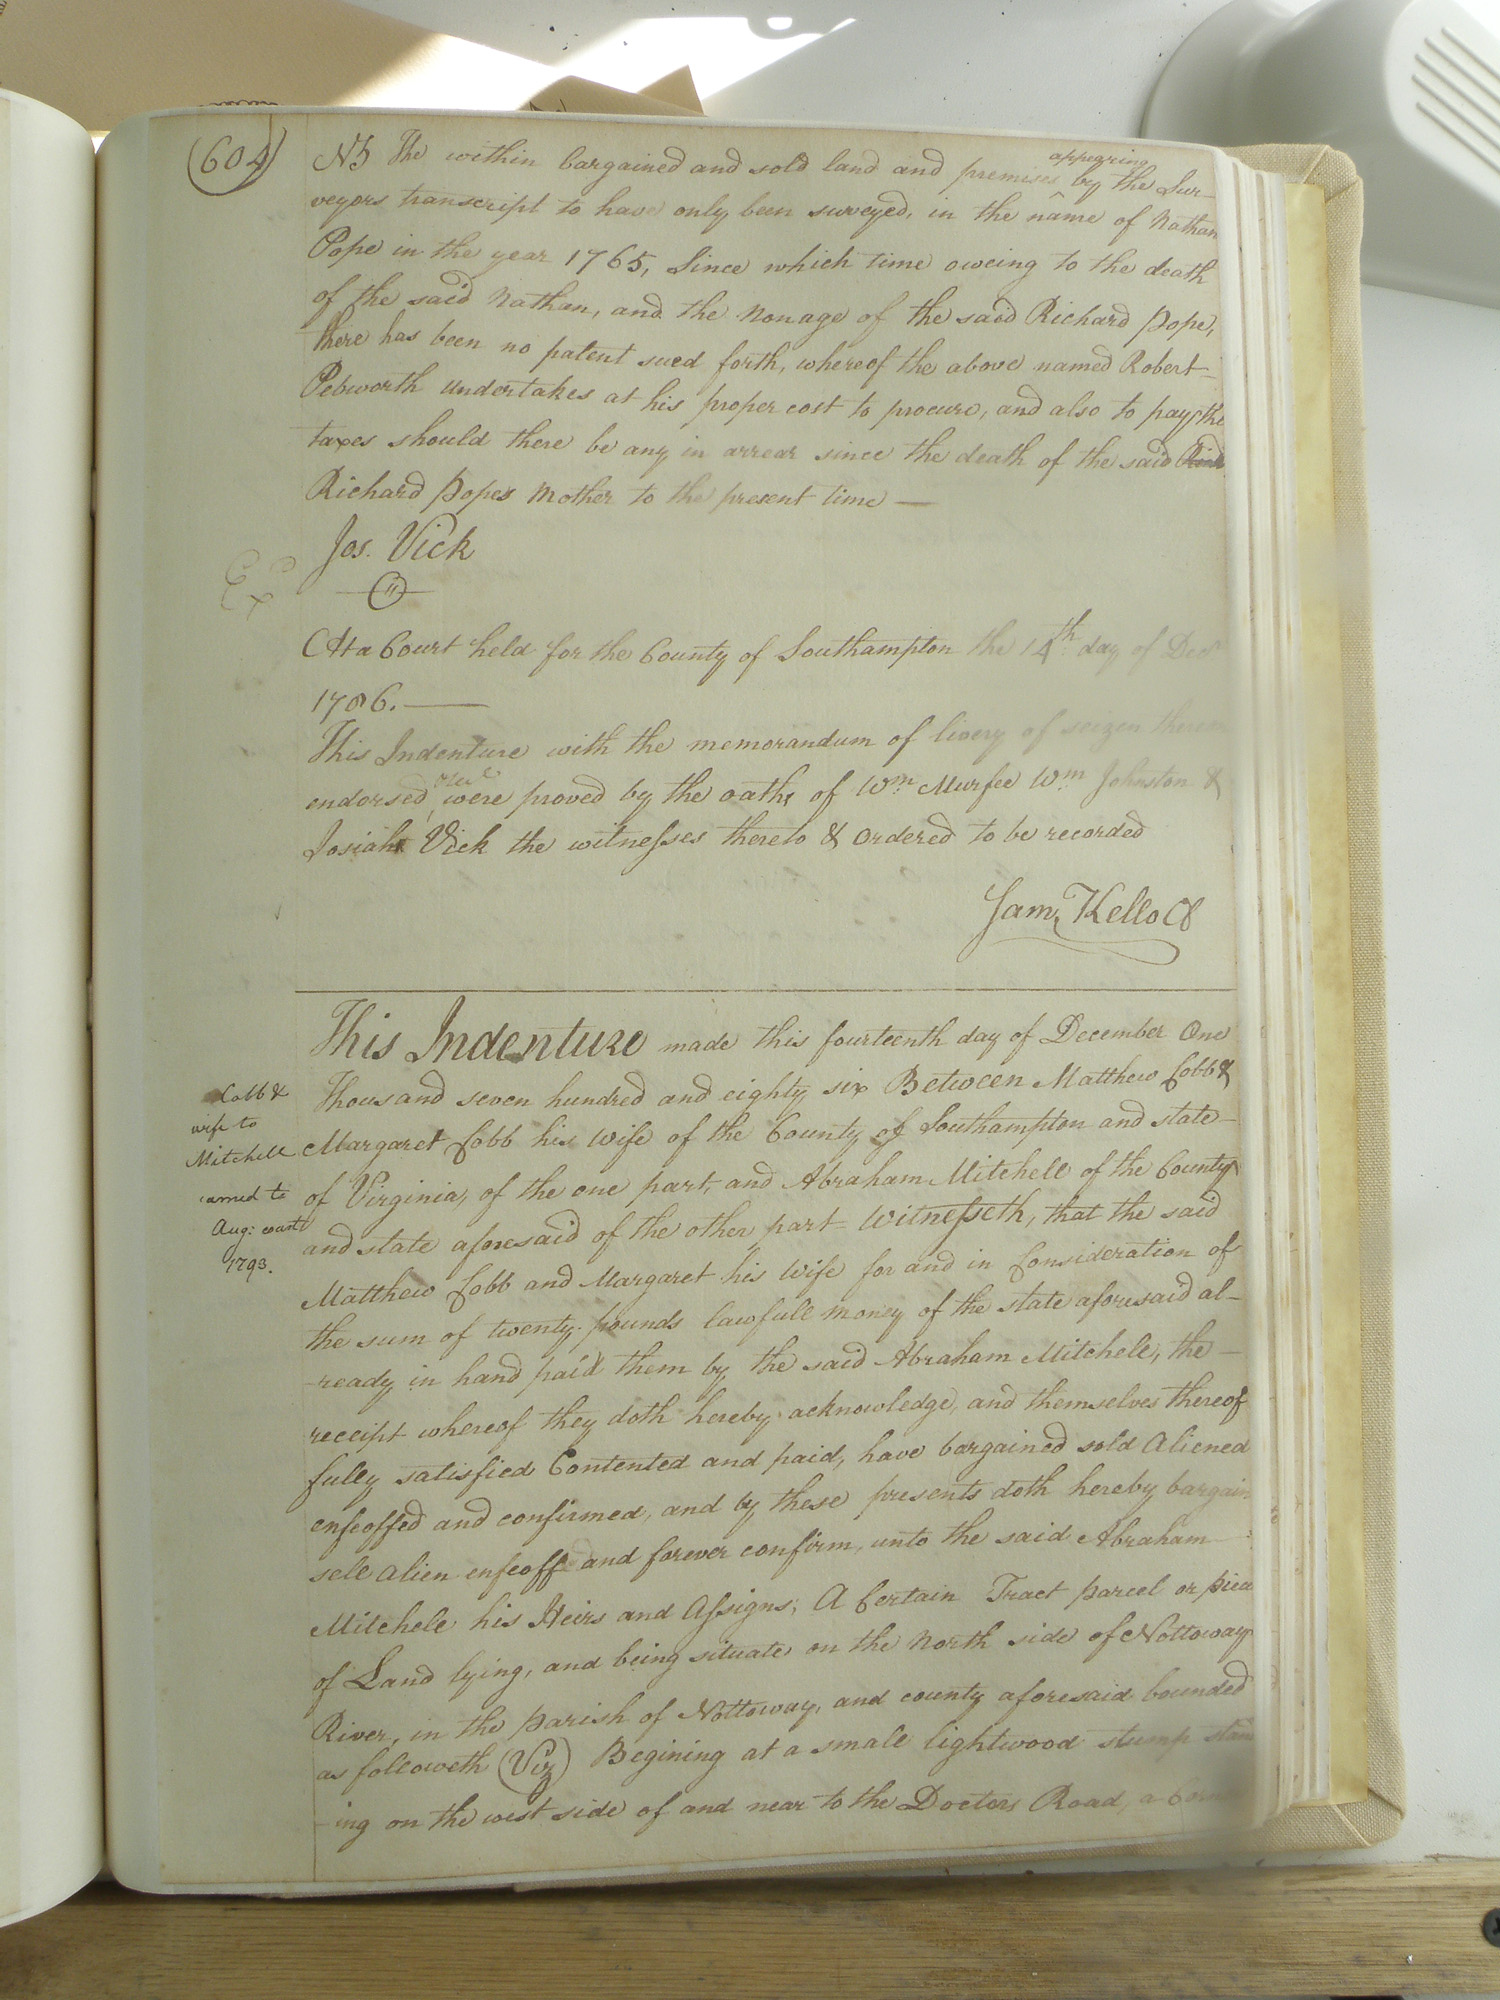 (604)
NB The within bargained and sold land and premises appearing by the Sur-
veyors transcript to have only been surveyed, in the name of Nathan
Pope in the year 1765, Since which time oweing to the death
of the said Nathan, and the Nonage of the said Richard Pope,
there has been no patent sued forth, whereof the above named Robert
Pebworth undertakes at his proper cost to procure, and also to pay the
taxes should there be any in arrear since the death of the said
Richard Popes Mother to the present time —
Jos. Vick
Exd
At a Court held for the County of Southampton the 14th day of Decr
1786. —
This Indenture with the memorandum of livery of seizen thereon
endorsed were proved by the oaths of Wm Murfee Wm Johnston &
Josiah Vick the witnesses thereto & ordered to be recorded
Sam Kello Cl
This Indenture made this fourteenth day of December One
Thousand seven hundred and eighty six Between Matthew Cobb &
Margaret Cobb his Wife of the County of Southampton and state
of Virginia, of the one part, and Abraham Mitchell of the County
and state aforesaid of the other part Witnesseth, that the said
Matthew Cobb and Margaret his Wife for and in Consideration of
the sum of twenty pounds lawfull money of the state aforesaid al-
-ready in hand paid them by the said Abraham Mitchell, the —
receipt whereof they doth hereby acknowledge, and themselves thereof
fully satisfied Contented and paid, have bargained sold Aliened
enfeoffed and confirmed, and by these presents doth hereby bargain
sell Alien enfeoff and forever confirm, unto the said Abraham
Mitchell his Heirs and Assigns; A Certain Tract parcel or piece
of Land lying, and being situate on the North side of Nottoway
River, in the Parish of Nottoway, and county aforesaid bounded
as followeth (Viz) Begining at a small lightwood stump stan
-ing on the west side of and near to the Doctors Road, a
Cobb &
wife to
Mitchell
Aug: court
1793.